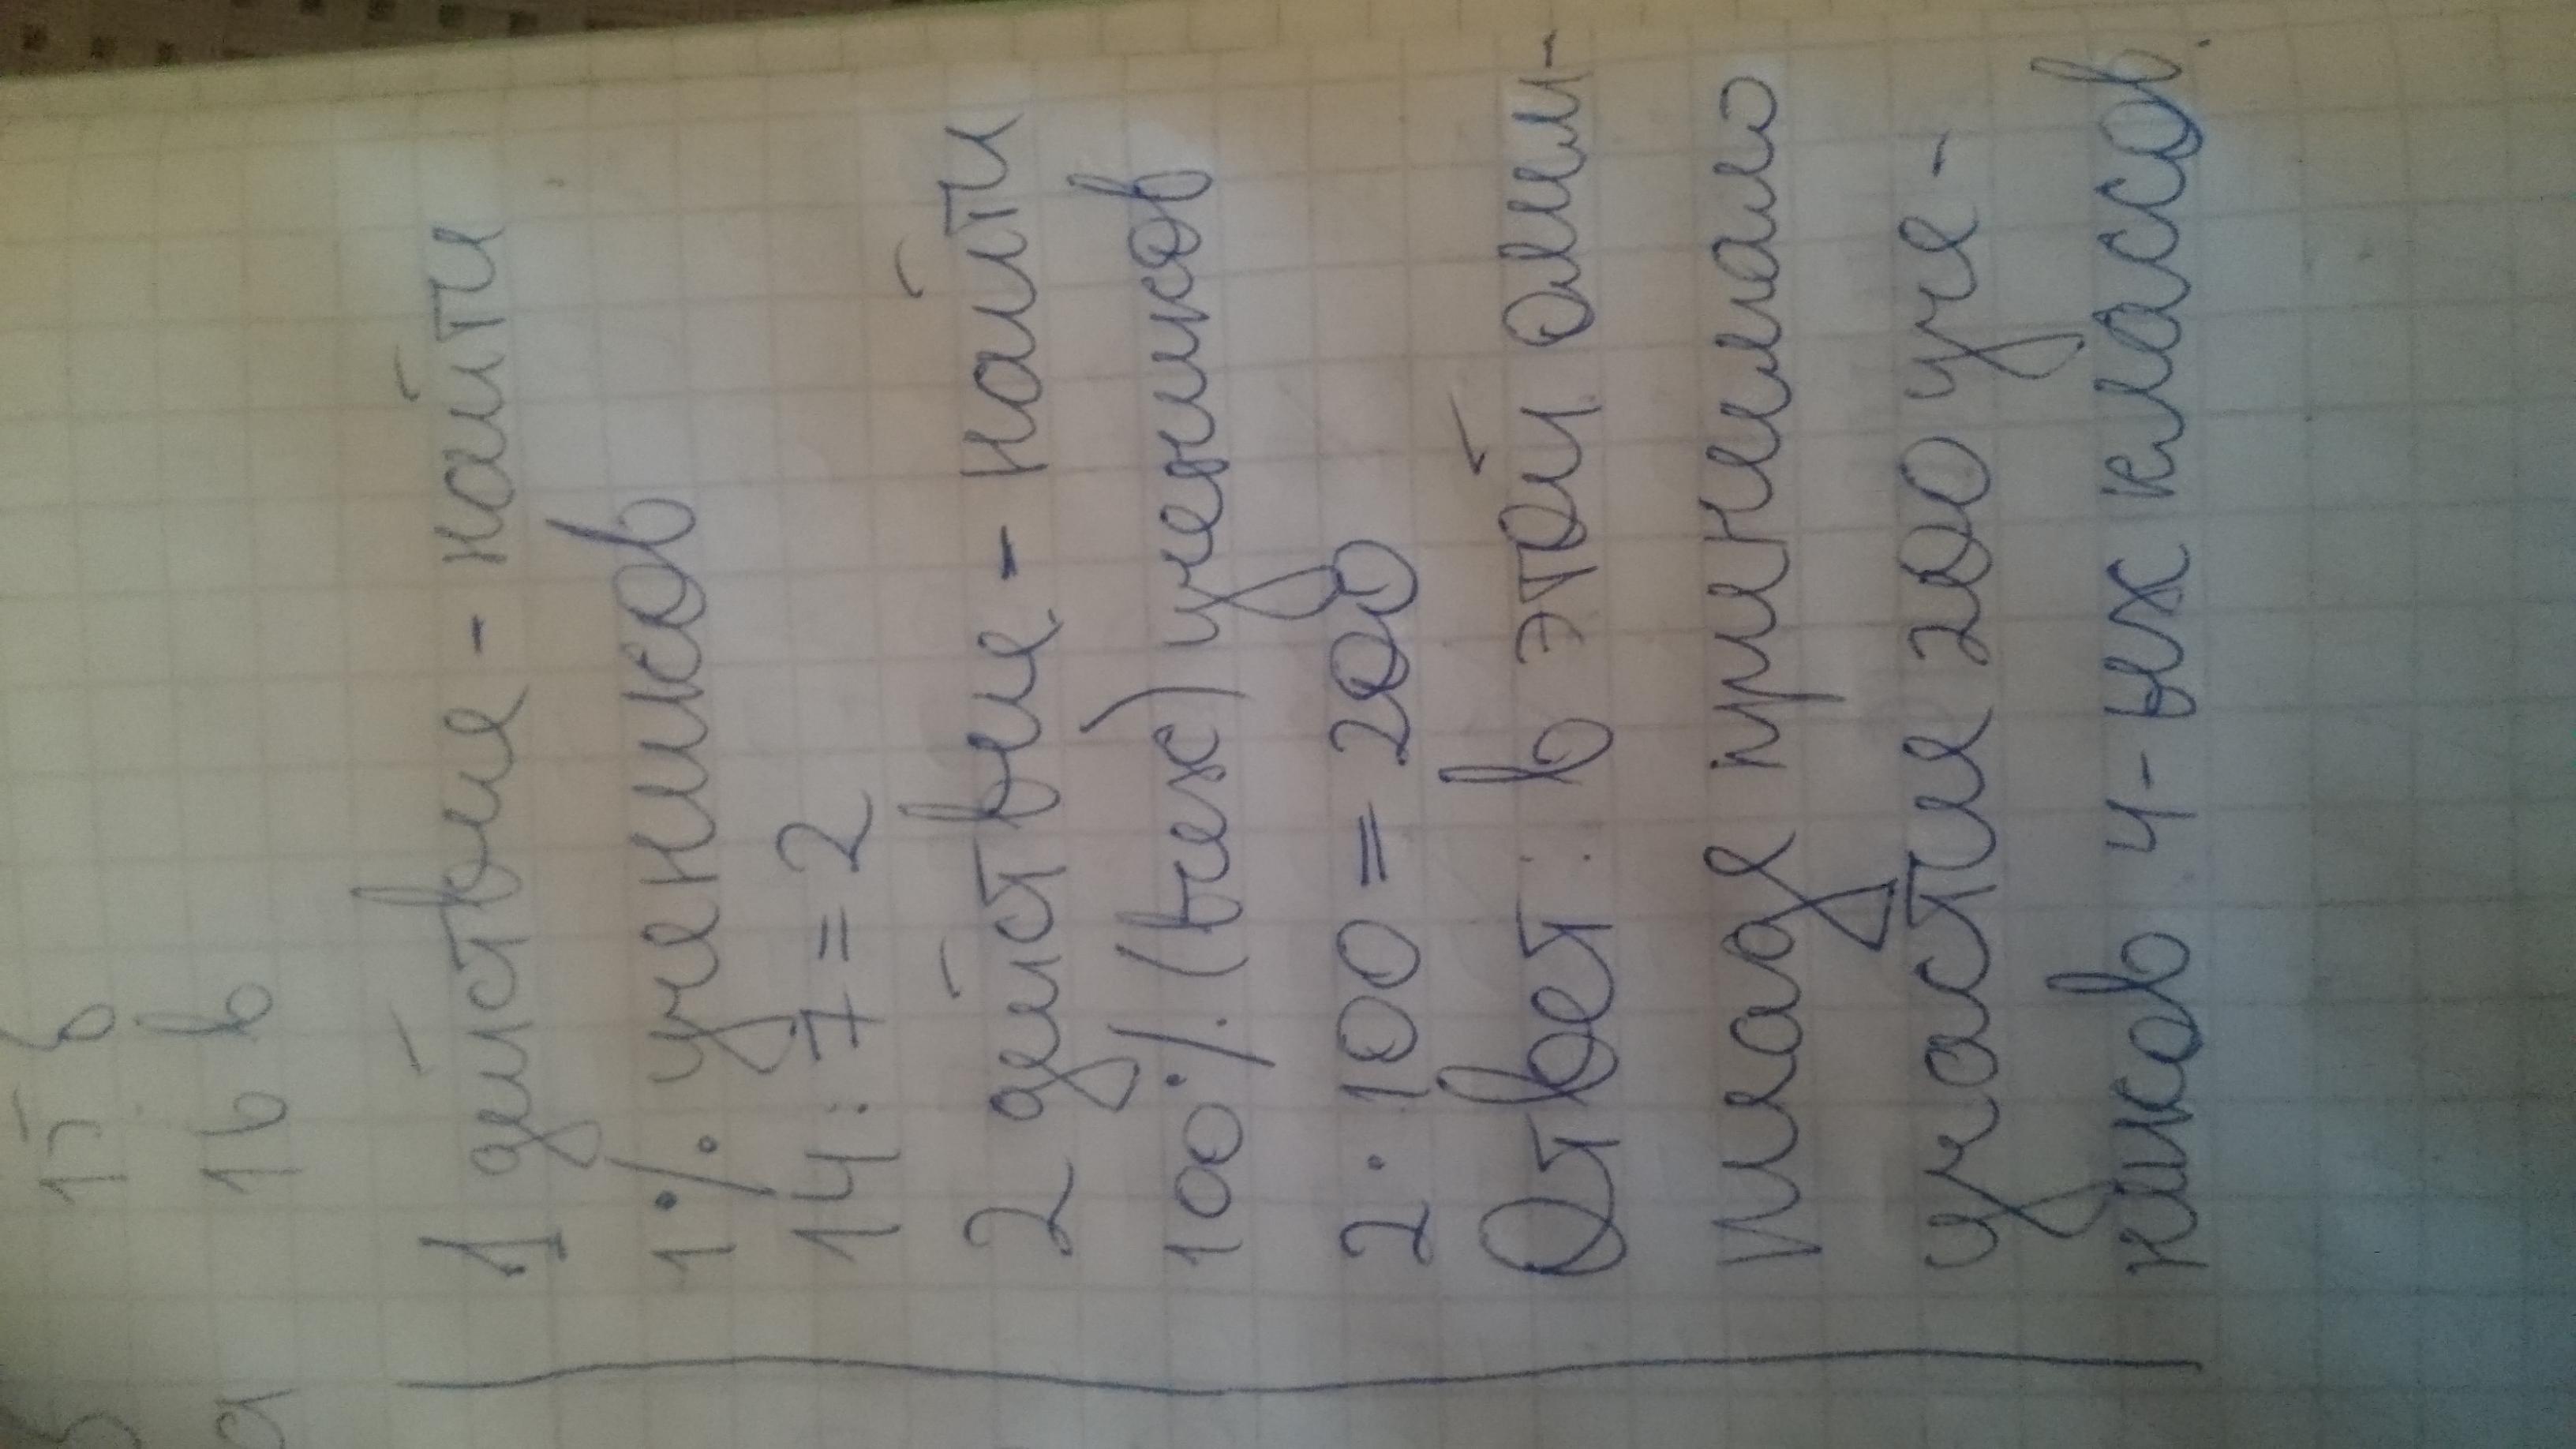 15 б
а 16 в
1 действие - найти
1% учеников
14 : 7 = 2
2 действие - найти
100% (всех) учеников
2 · 100 = 200
Ответ: в этой олим-
пиаде принимало
участие 200 уче-
ников 4-ых классов.